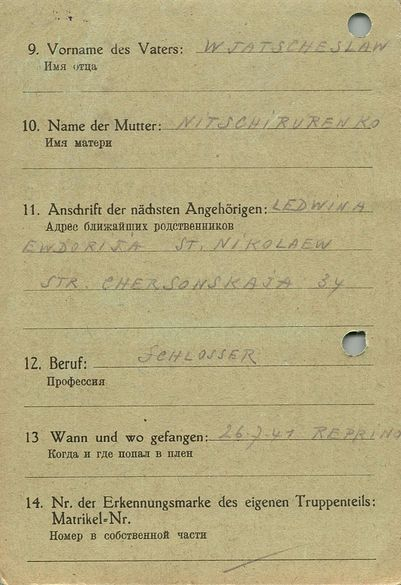 9. Vorname des Vaters: WJATSCHESLAW
Имя отца
10. Name der Mutter: NITSCHIRURENKO
Имя матери
11. Anschrift der nächsten Angehörigen: LEDWINA
Адрес ближайших родственников
EWDORIJA ST. NIKOLAEW
STR. CHERSONSKAJA 34
12. Beruf: SCHLOSSER
Профессия
13 Wann und wo gefangen: 26.7.41 REPRINO
Когда и где попал в плен
14. Nr. der Erkennungsmarke des eigenen Truppenteils:
Matrikel=Nr.
Номер в собственной части